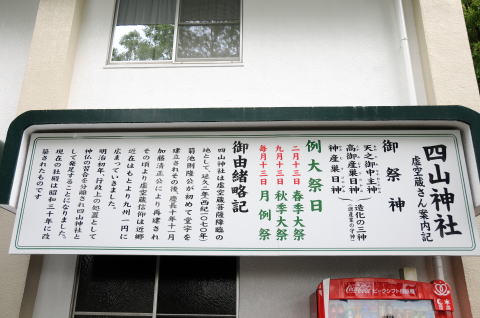 四山神社
虚空蔵さん案内記
御祭神
天之御中主神
高御産巣日神
神産巣日神
造化の三神
例大祭日
二月十三日 春季大祭
九月十三日 秋季大祭
毎月十三日 月例祭
御由緒略記
四山神社は虚空蔵菩薩降臨の
地として、延久二年(西紀一〇七〇年)
菊池則隆公が初めて堂宇を
建立されその後、慶長十年十一月
加藤清正公により再建され
その頃より虚空蔵信仰は近郷
近在はもとより九州一円に
広まっていきました。
明治初年、行政上の処置として
神仏の習合を分離され四山神社と
して発足することになりました。
現在の社殿は昭和三十年に改
築されたものです